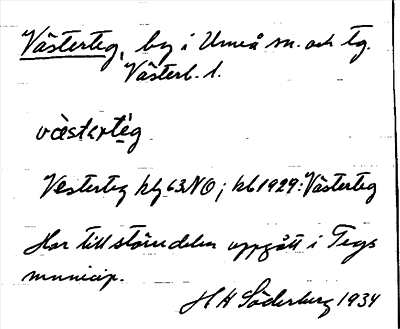 Västerteg, by i Umeå sn. och tg.
Västerb. l.
västərtég
Vesterteg hfg 63NO; kb 1929: Västerteg
Har till större delen uppgått i Tegs
municip.
H H Söderberg 1934